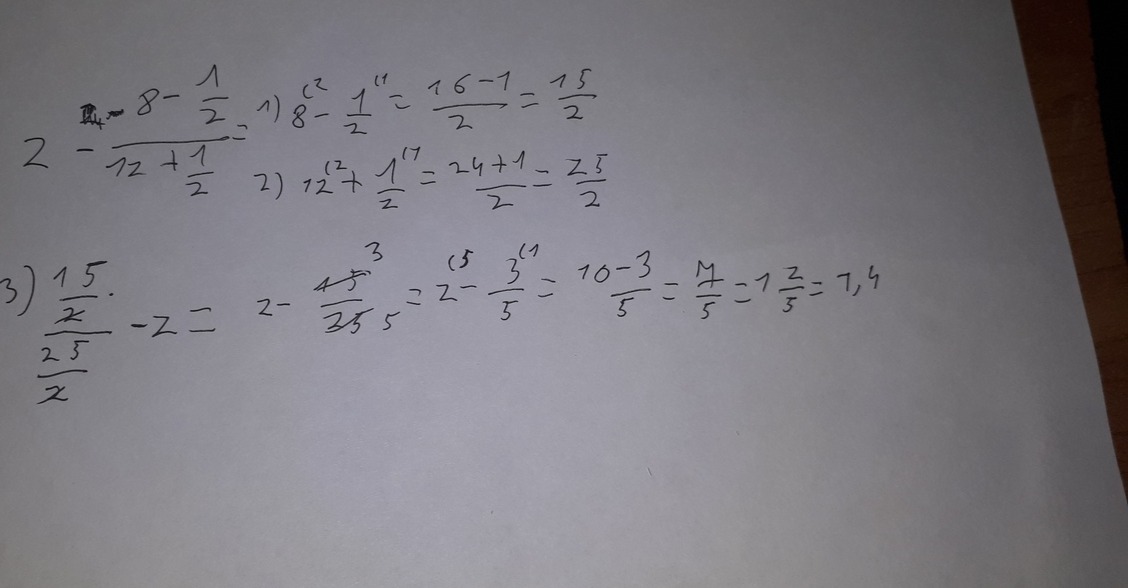 2 - (8 - 1/2)/(12 + 1/2) = 1) 8^(2 - 1/2^(1 = (16-1)/2 = 15/2
2) 12^(2 + 1/2^(1 = (24+1)/2 = 25/2
3) (15/2)/(25/2) - 2 = 2 - 15/25 3 5 = 2^(5 - 3/5^(1 = (10-3)/5 = 7/5 = 1 2/5 = 1,4